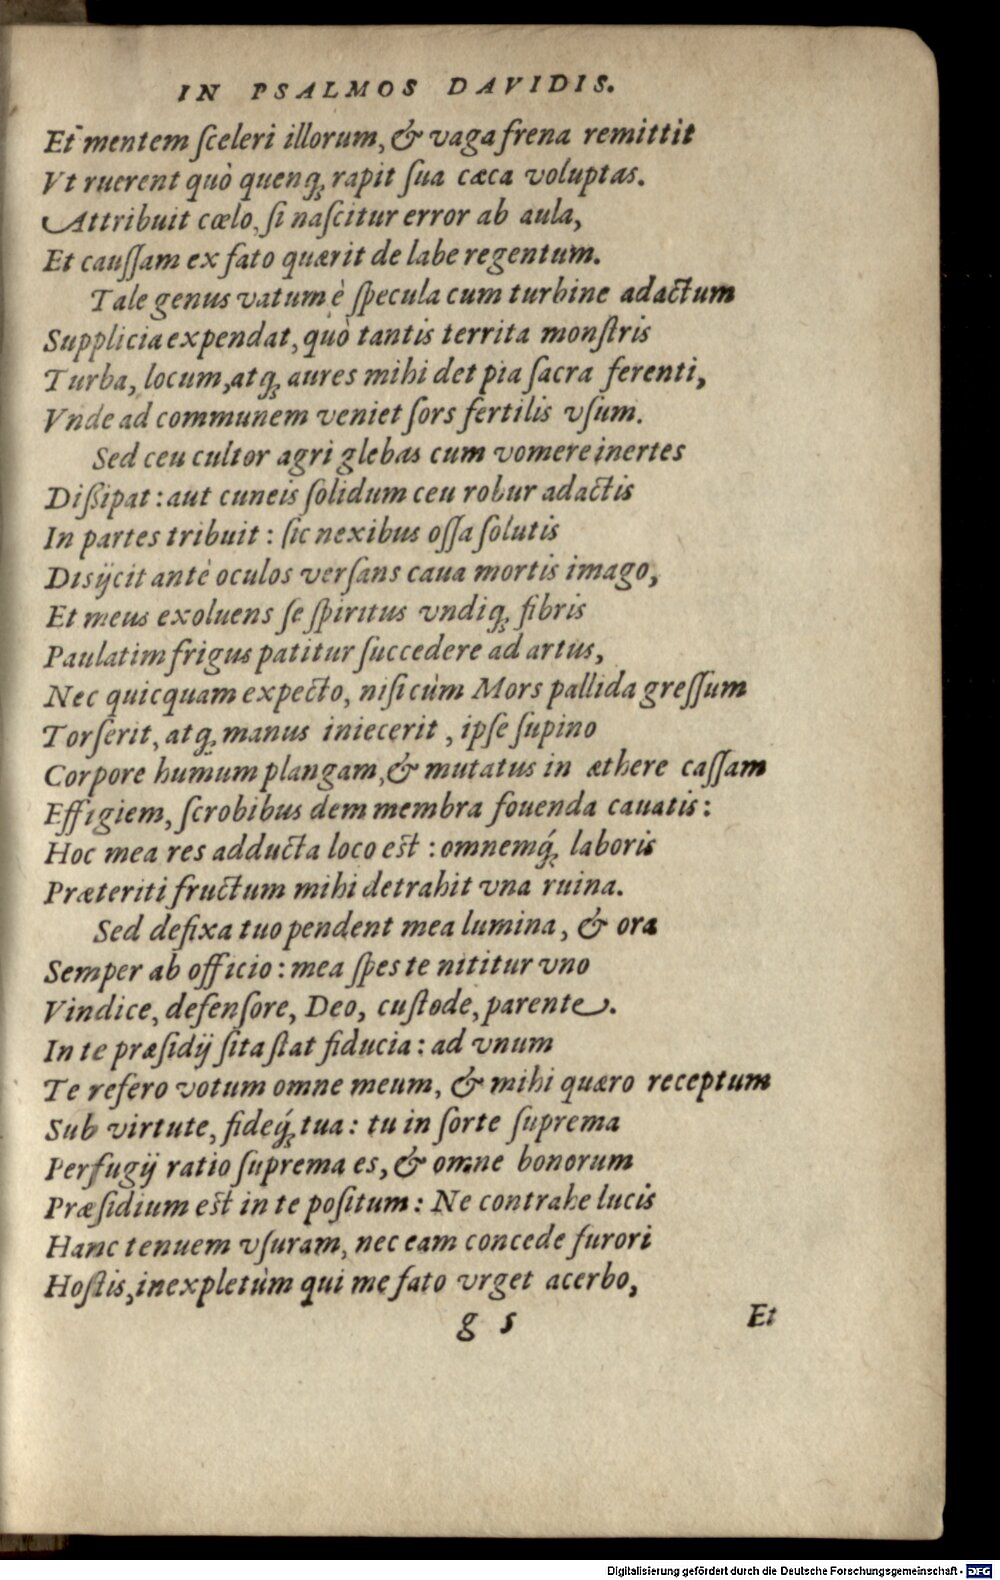 IN PSALMOS DAVIDIS.
Et mentem ſceleri illorum, & vaga frena remittit
Vt ruerent quò quenq; rapit ſua cæca voluptas.
Attribuit cœlo, ſi naſcitur error ab aula,
Et cauſſam ex fato quærit de labe regentum.
Tale genus vatum è ſpecula cum turbine adactum
Supplicia expendat, quò tantis territa monſtris
Turba, locum, atq; aures mihi det pia ſacra ferenti,
Vnde ad communem veniet ſors fertilis vſum.
Sed ceu cultor agri glebas cum vomere inertes
Diſſipat: aut cuneis ſolidum ceu robur adactis
In partes tribuit: ſic nexibus oſſa ſolutis
Disijcit antè oculos verſans caua mortis imago,
Et meus exoluens ſe ſpiritus vndiq; fibris
Paulatim frigus patitur ſuccedere ad artus,
Nec quicquam expecto, niſi cùm Mors pallida greſſum
Torſerit, atq; manus iniecerit, ipſe ſupino
Corpore humum plangam, & mutatus in æthere caſſam
Effigiem, ſcrobibus dem membra fouenda cauatis:
Hoc mea res adducta loco est: omnemq́; laboris
Præteriti fructum mihi detrahit vna ruina.
Sed defixa tuo pendent mea lumina, & ora
Semper ab officio: mea ſpes te nititur vno
Vindice, defenſore, Deo, cuſtode, parente.
In te præſidij ſita ſtat fiducia: ad vnum
Te refero votum omne meum, & mihi quæro receptum
Sub virtute, fideq́; tua: tu in ſorte ſuprema
Perfugij ratio ſuprema es, & omne bonorum
Præſidium est in te poſitum: Ne contrahe lucis
Hanc tenuem vſuram, nec eam concede furori
Hoſtis, inexpletùm qui me fato vrget acerbo,
g 5 Et
Digitalisierung gefördert durch die Deutsche Forschungsgemeinschaft - DFG